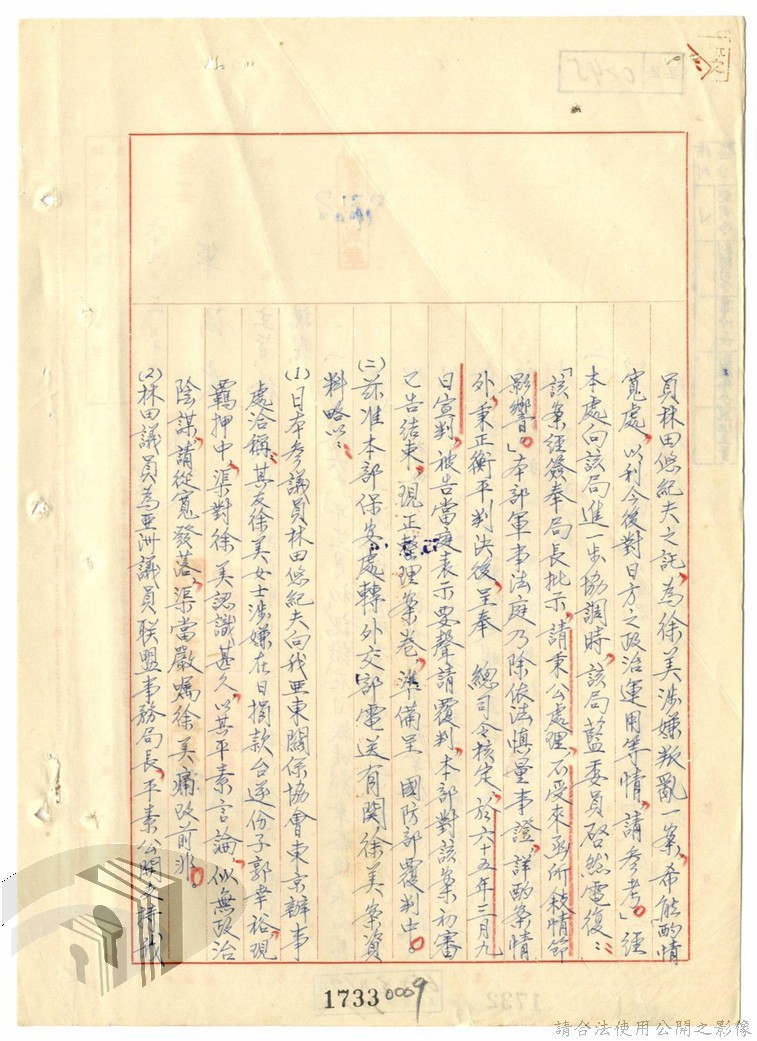 員林田悠紀夫之託,為徐美涉嫌叛亂一案,希能酌情
寬處,以利今後對日方之政治運用等情,請參考。」經
本處向該局進一步協調時,該局藍委員啓然電復:
「該案經簽奉局長批示,請秉公處理,不受來函所敍情節
影響。」本部軍事法庭乃除依法慎量事證,詳酌案情
外,秉正衡平判決後,呈奉 總司令核定,於六十五年三月九
日宣判,被告當庭表示要聲請覆判,本部對該案初審
已告結束,現正整理案卷,準備呈 國防部覆判中。
(二)茲准本部保安處轉外交部電送有関徐美案資
料略以:
(1)日本參議員林田悠紀夫向我亞東關係協會東京辦事
處洽稱:其友徐美女士涉嫌在日捐款台逆份子郭幸裕,現
羈押中,渠對徐美認識甚久,以其平素言論,似無政治
陰謀,請從寬發落,渠當嚴嘱徐美痛改前非。
(2)林田議員為亞洲議員联盟事務局長,平素公開支持我
0245
1733
0009
1732
請合法使用公開之影像